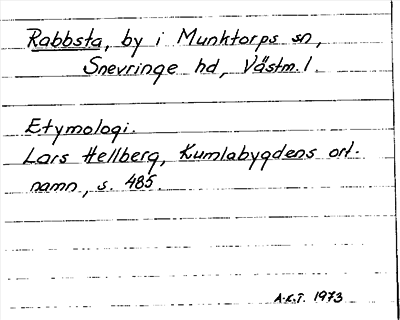 Rabbsta, by i Munktorps sn,
Snevringe hd, Västm. l.
Etymologi.
Lars Hellberg, Kumlabygdens ort-
namn, s. 485.
A.K.T. 1973